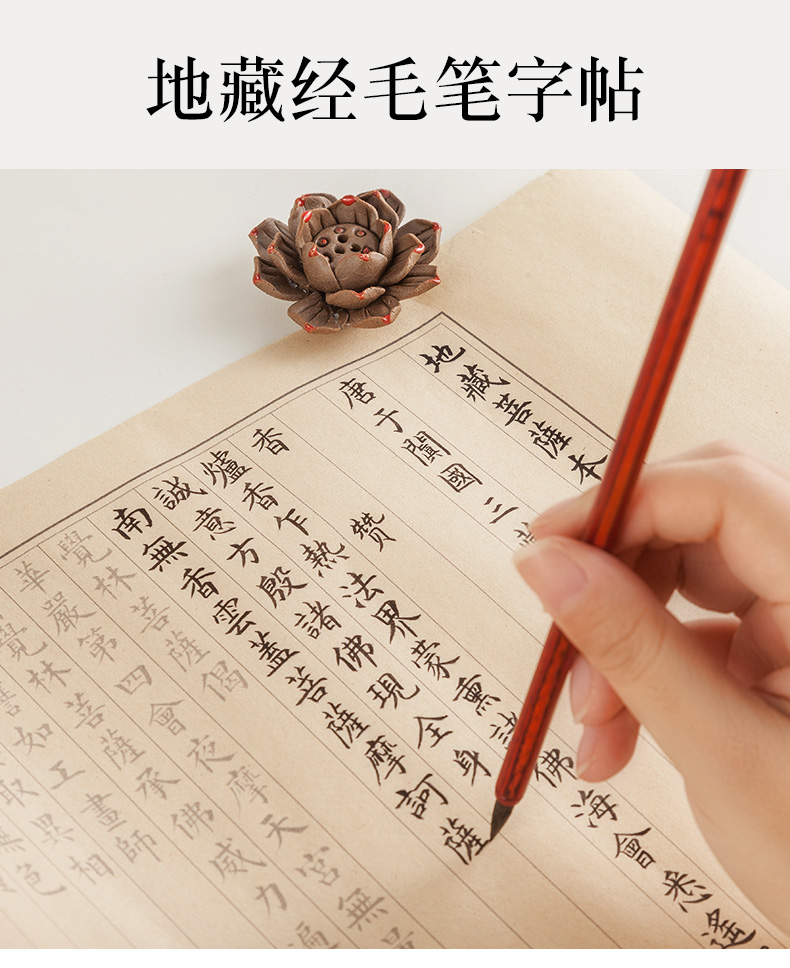 地藏经毛笔字帖
地藏菩薩本
唐于闐國三
香赞
爐香乍熱法界蒙熏諸佛海會悉遙
誠意方殷諸佛現全身
南無香雲蓋菩薩摩訶薩
覺林菩薩偈
華嚴第四會夜摩天宮無
覺林菩薩承佛威力遍
如工畫師
取異相
色